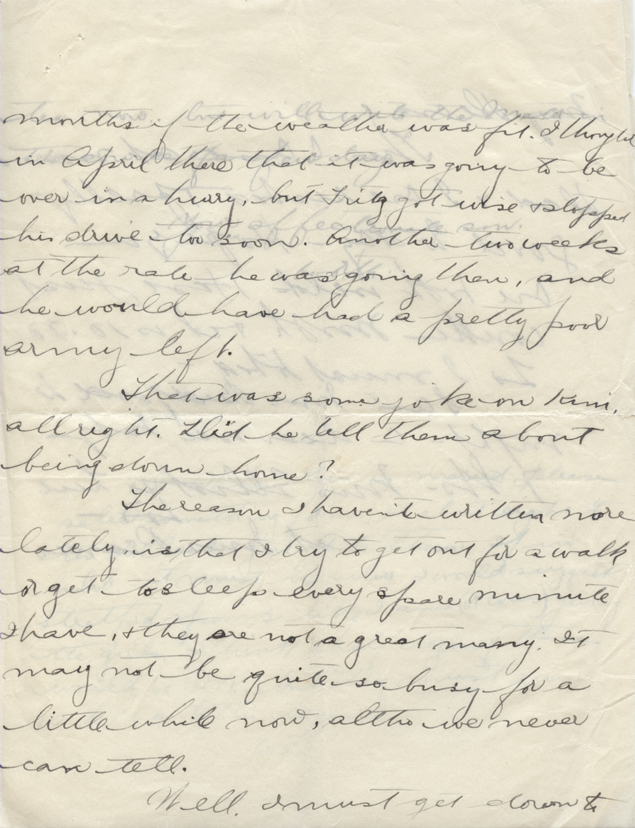 months if the weather was fit. I thought
in April there that it was going to be
over in a hurry, but Fritz got wise & stopped
his drive too soon. Another two weeks
at the rate he was going then, and
he would have had a pretty poor
army left.
That was some joke on Kim,
all right. Did he tell them about
being down home?
The reason I haven't written more
lately is that I try to get out for a walk
or get to sleep every spare minute
I have, & they are not a great many. It
may not be quite so busy for a
little while now, altho we never
can tell.
Well, I must get down to